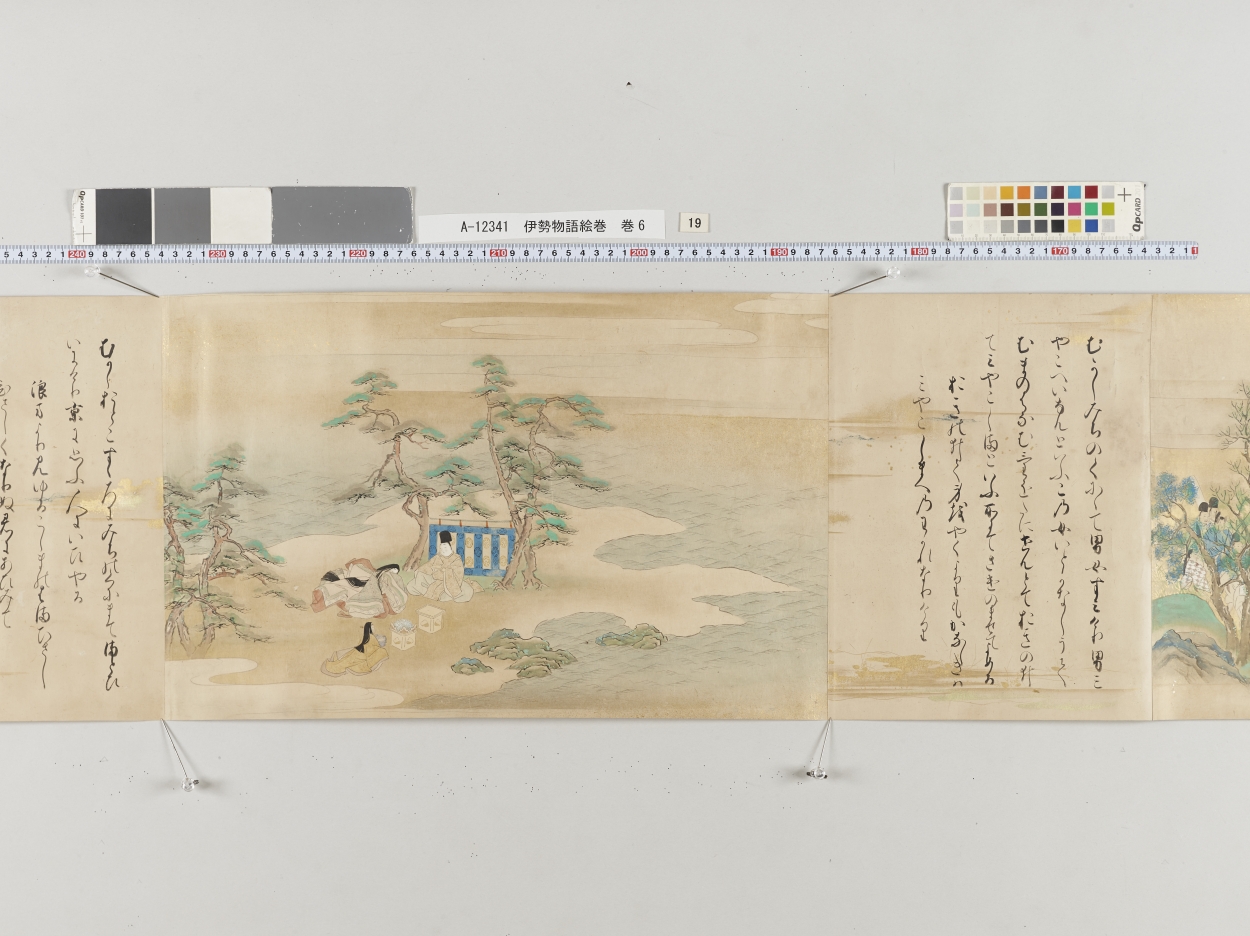 A-12341 伊勢物語絵巻 巻6
19
QpCARD
むかしみちのくにて男女すみけり男み
やこへいなんといふこの女いとかなしうて
むまのはなむけをたにせんとておきのゐ
てみやこしまといふ所にてさけのませてよめる
おきのゐて身をやくよりもかなしきは
みやこしまへのわかれなりけり
むかしおとこすゝろにみちの国まてまとひ
いにけり京におもふ人にいひやる
浪まより見ゆるこしまのはまひさし
ひさしくなりぬ君にあひみて